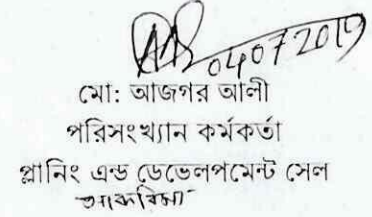 04072019
মো: আজগর আলী
পরিসংখ্যান কর্মকর্তা
প্লানিং এন্ড ডেভেলপমেন্ট সেল